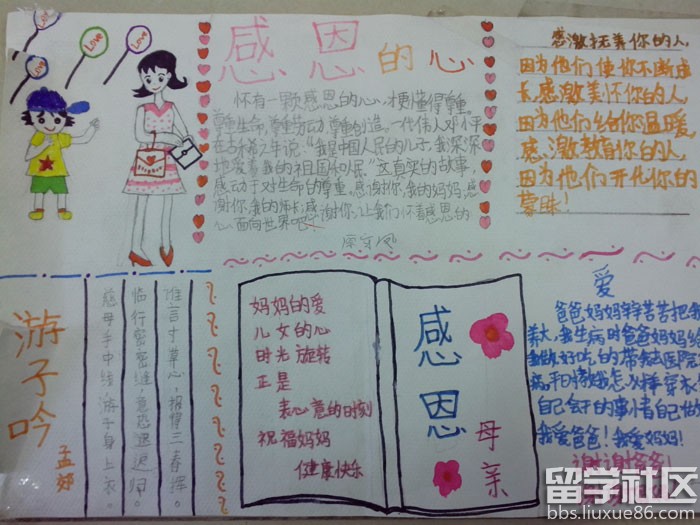 Love
Love
Love
感恩的心
怀有一颗感恩的心,才更懂得尊重。
尊重生命,尊重劳动,尊重创造。一代伟人邓小平
在古稀之年说:“我是中国人民的儿子,我深深
地爱着我的祖国和人民”这真实的故事,
感动于对生命的尊重。感谢你,我的妈妈,感
谢你,我的师长,感谢你,让我们怀着感恩的
心面向世界吧。
感激抚养你的人,
因为他们使你不断成
长,感激关怀你的人,
因为他们给你温暖
感激教育你的人,
因为他们开化你的
蒙昧!
游子吟
孟郊
慈母手中线,游子身上衣。
临行密密缝,意恐迟迟归。
谁言寸草心,报得三春晖。
妈妈的爱
儿女的心
时光旋转
正是
表心意的时刻
祝福妈妈
健康快乐
感恩
母亲
爱
爸爸妈妈辛辛苦苦把我
养大,我生病时爸爸妈妈给
我做好吃的带我去医院
自己会干的事情自己做
我爱爸爸!我爱妈妈!
谢谢爸爸!
留学社区
bbs.liuxue86.com